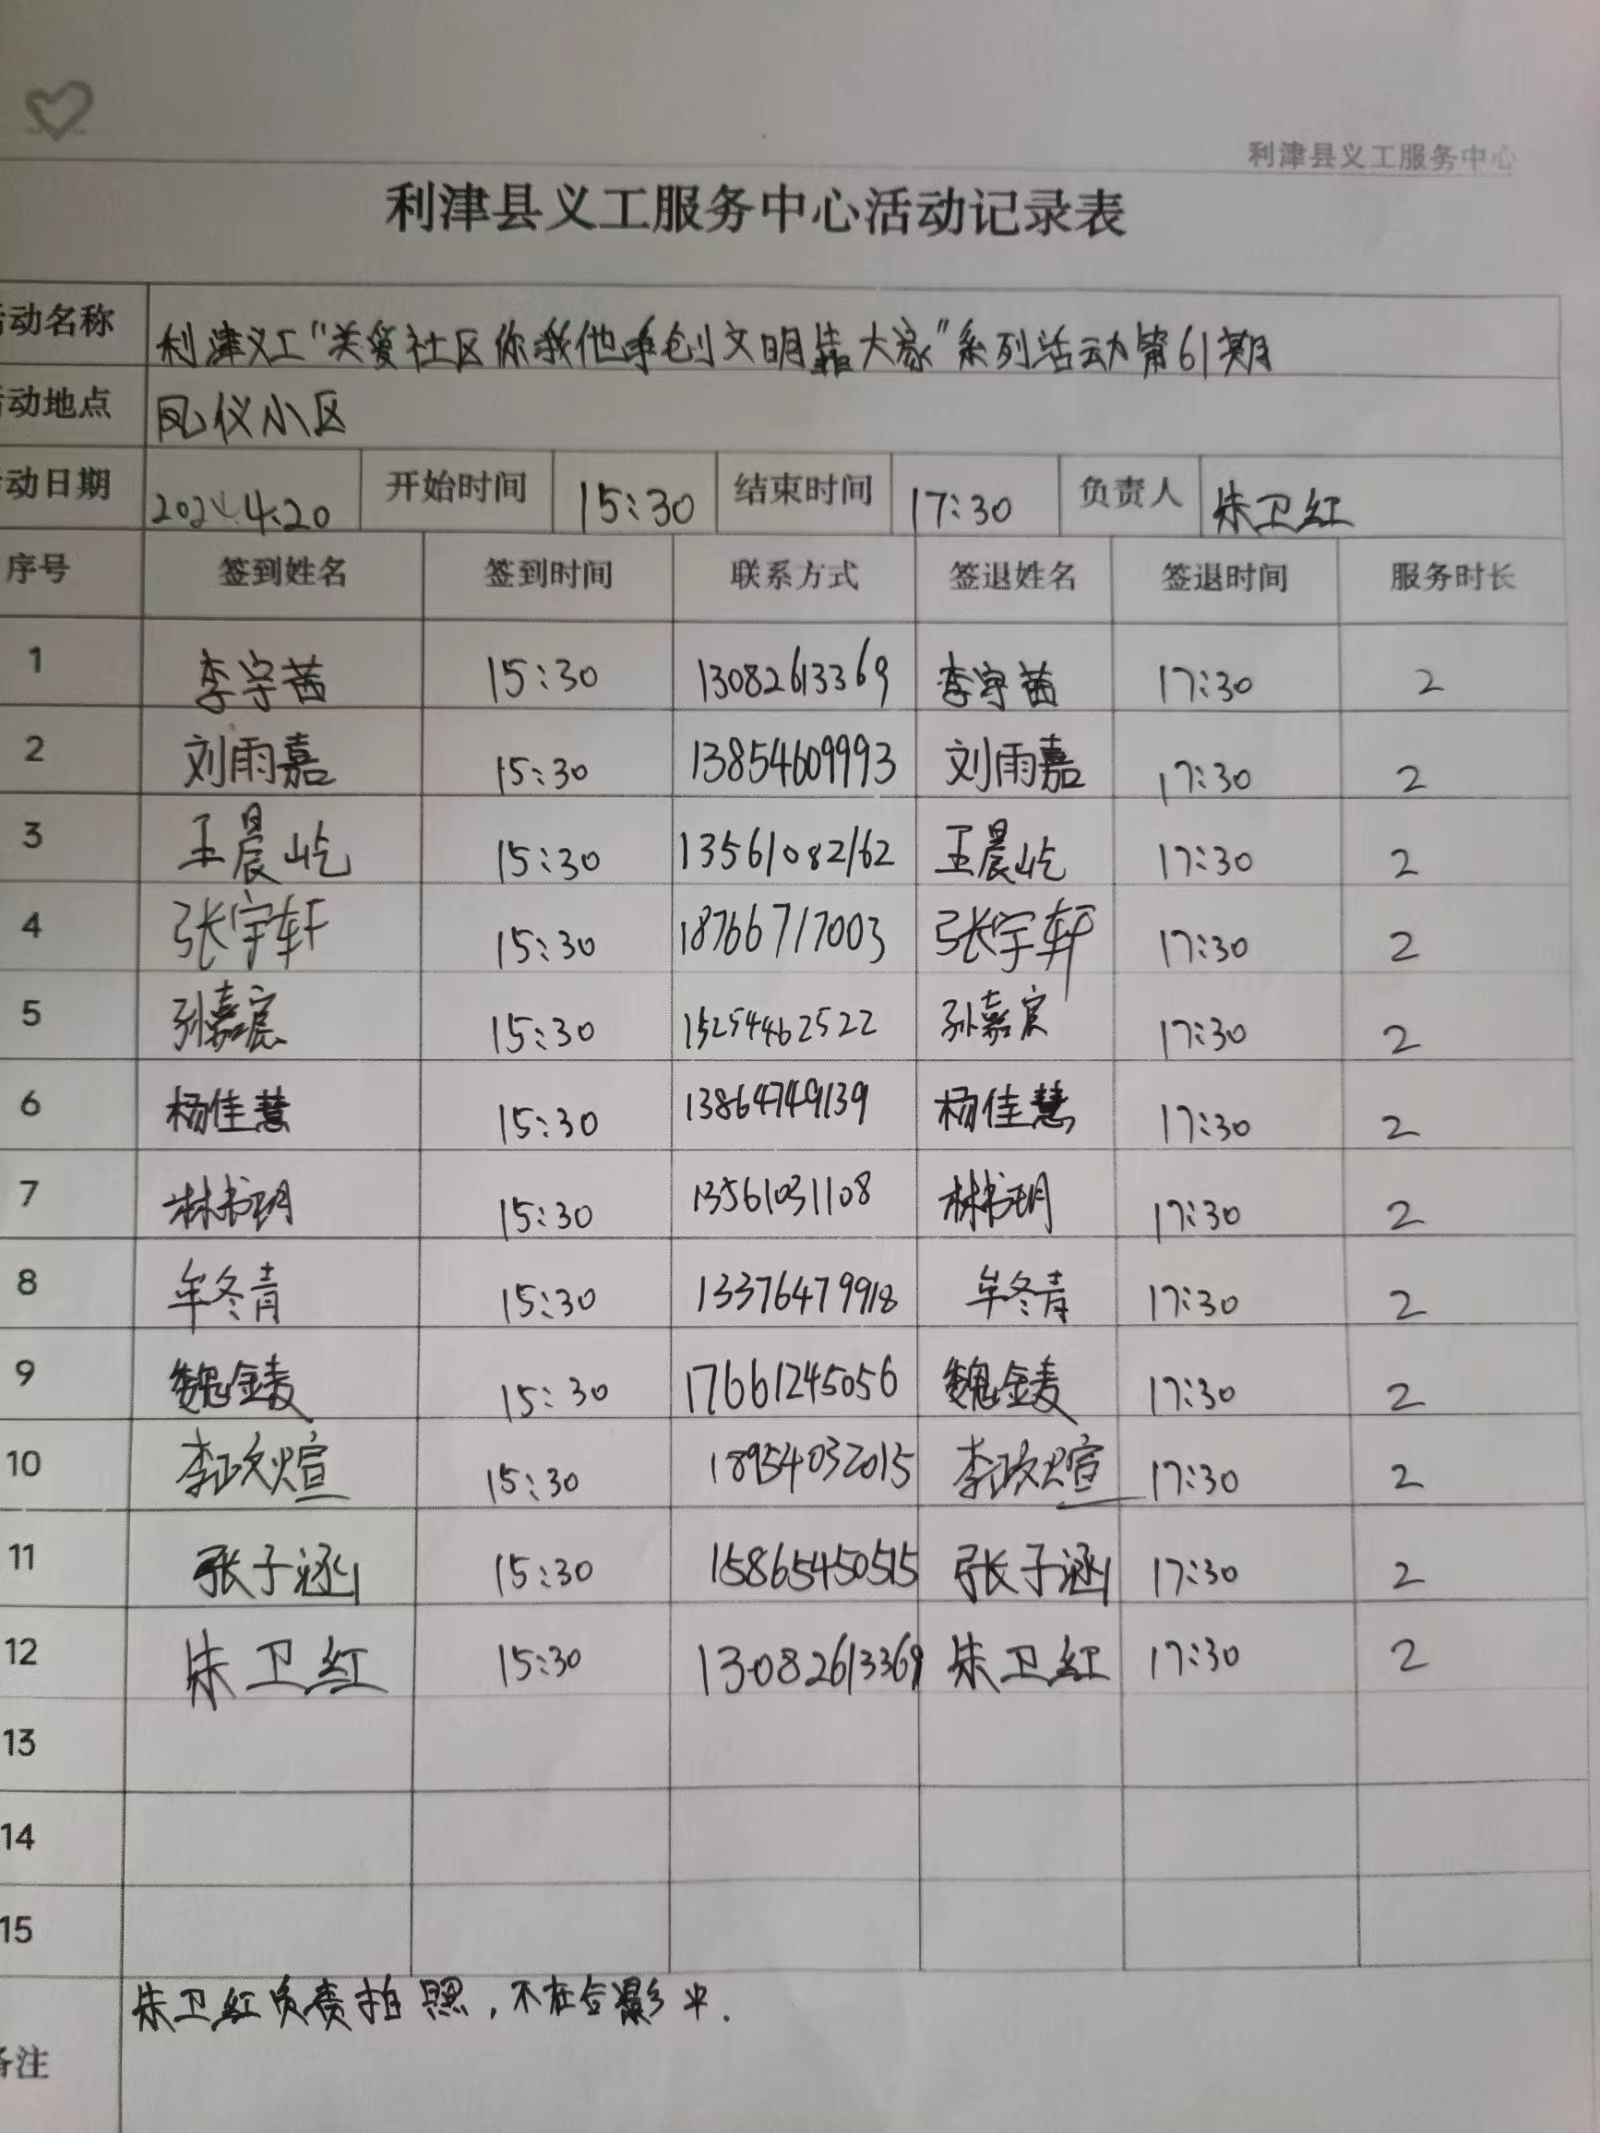 利津县义工服务中心
利津县义工服务中心活动记录表
动名称 利津义工"关爱社区你我他争创文明靠大家"系列活动第61期
动地点 凤仪小区
动日期 4.20 开始时间 15:30 结束时间 17:30 负责人 朱卫红
序号 签到姓名 签到时间 联系方式 签退姓名 签退时间 服务时长
1 李宇茜 15:30 13082613369 李宇茜 17:30 2
2 刘雨嘉 15:30 13854609993 刘雨嘉 17:30 2
3 王晨屹 15:30 13561082162 王晨屹 17:30 2
4 张宇轩 15:30 18766717003 张宇轩 17:30 2
5 孙嘉宸 15:30 15254462522 孙嘉宸 17:30 2
6 杨佳慧 15:30 13864749139 杨佳慧 17:30 2
7 林书玥 15:30 13561031108 林书玥 17:30 2
8 牟冬青 15:30 13376479918 牟冬青 17:30 2
9 15:30 17661245056 17:30 2
10 李政煊 15:30 18954032015 李政煊 17:30 2
11 张子涵 15:30 15865450515 张子涵 17:30 2
12 朱卫红 15:30 13082613369 朱卫红 17:30 2
13
14
15
备注 朱卫红负责拍照,不在合影中.